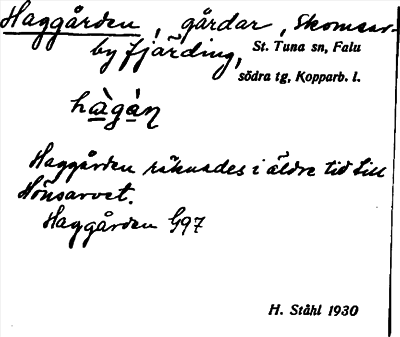 Haggården, gårdar, Skomsar-
by fjärding, St. Tuna sn, Falu
södra tg, Kopparb. l.
hàgàn
Haggården räknades i äldre tid till
Hönsarvet.
Haggården G97
H. Ståhl 1930